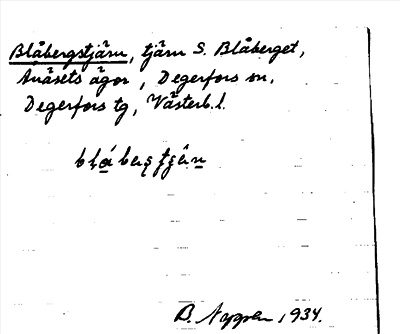 Blåbergstjärn, tjärn S. Blåberget,
Anåsets ägor, Degerfors sn,
Degerfors tg, Västerb. l.
B. Nygren, 1934.